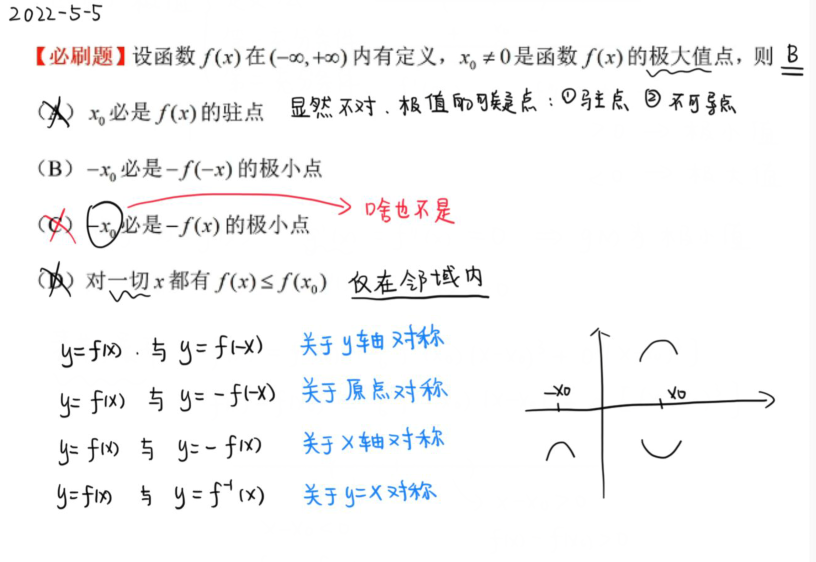 2022-5-5
【必刷题】设函数 f(x) 在 (-∞, +∞) 内有定义，x₀ ≠ 0 是函数 f(x) 的极大值点，则 B
（A） x₀ 必是 f(x) 的驻点 显然不对. 极值的可疑点：①驻点 ②不可导点
（B） -x₀ 必是 -f(-x) 的极小点
（C） -x₀ 必是 -f(x) 的极小点 啥也不是
（D） 对一切 x 都有 f(x) ≤ f(x₀) 仅在邻域内
y=f(x). 与 y=f(-x) 关于y轴对称
y=f(x) 与 y=-f(-x) 关于原点对称
-x₀ x₀
y=f(x) 与 y=-f(x) 关于x轴对称
y=f(x) 与 y=f⁻¹(x) 关于y=x对称